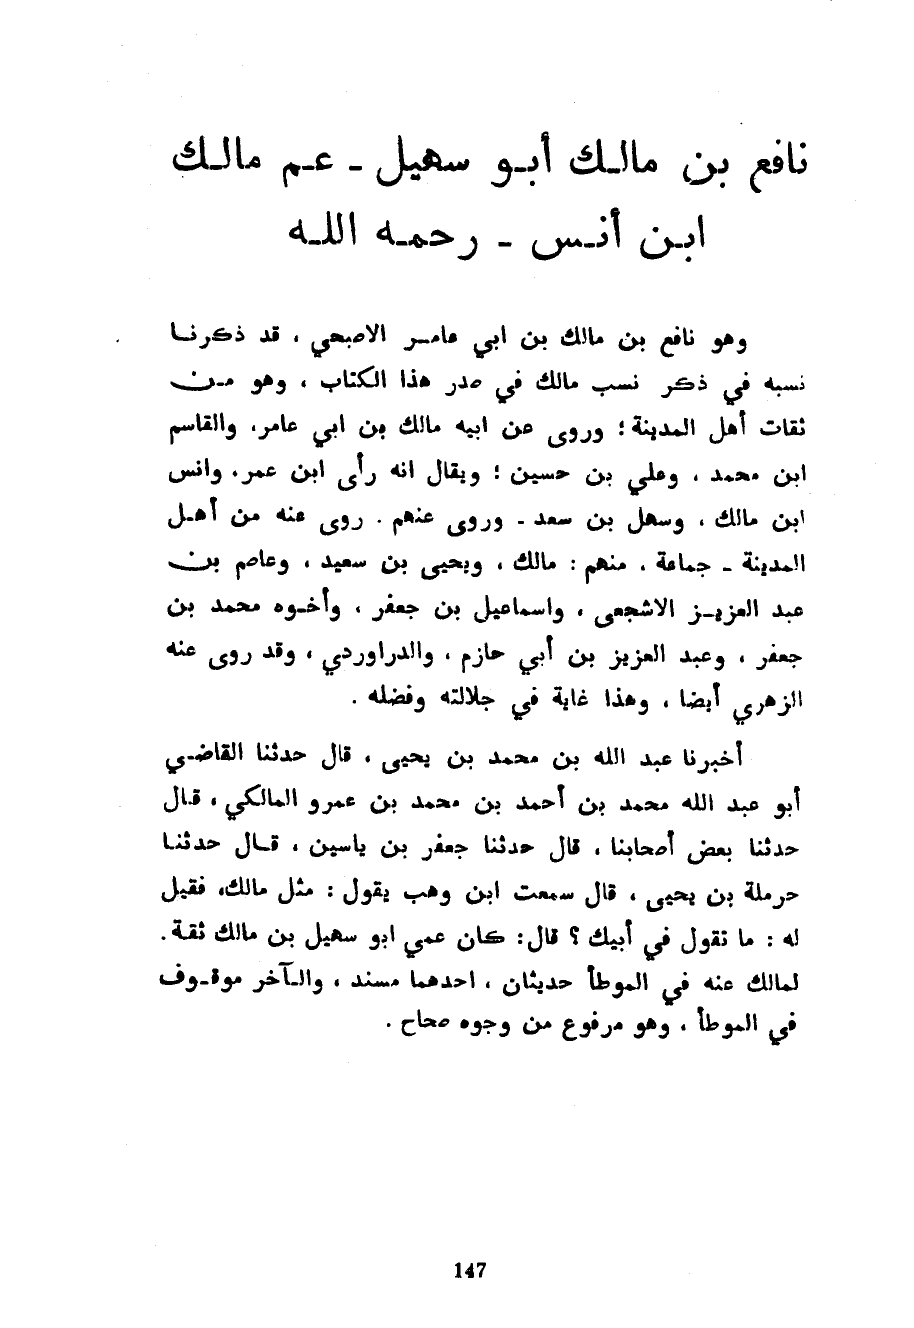 نافع بن مالك أبو سهيل - عم مالك
ابن أنس - رحمه الله
وهو نافع بن مالك بن ابي عامر الاصبحي ، قد ذكرنا
نسبه في ذكر نسب مالك في صدر هذا الكتاب ، وهو من
ثقات أهل المدينة ؛ وروى عن ابيه مالك بن ابي عامر، والقاسم
ابن محمد ، وعلي بن حسين ؛ ويقال انه رأى ابن عمر، وانس
ابن مالك ، وسهل بن سعد - وروى عنهم . روى عنه من أهل
المدينة - جماعة ، منهم : مالك ، ويحيى بن سعيد ، وعاصم بن
عبد العزيز الاشجعى ، واسماعيل بن جعفر ، وأخوه محمد بن
جعفر ، وعبد العزيز بن أبي حازم ، والدراوردي ، وقد روى عنه
الزهري أيضا ، وهذا غاية في جلالته وفضله .
أخبرنا عبد الله بن محمد بن يحيى ، قال حدثنا القاضي
أبو عبد الله محمد بن أحمد بن محمد بن عمرو المالكي ، قال
حدثنا بعض أصحابنا ، قال حدثنا جعفر بن ياسين ، قال حدثنا
حرملة بن يحيى ، قال سمعت ابن وهب يقول : مثل مالك، فقيل
له : ما تقول في أبيك ؟ قال: كان عمي ابو سهيل بن مالك ثقة .
لمالك عنه في الموطأ حديثان ، احدهما مسند ، والآخر موقوف
في الموطأ ، وهو مرفوع من وجوه صحاح .
147